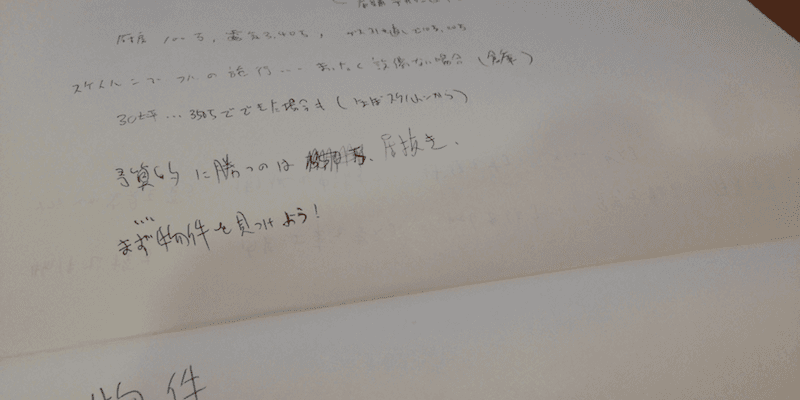 厨房 100万、電気3.40万、
スケルトンからの施行... まったく設備ない場合 (倉庫)
30坪... 350万でできた場合も (ほぼスケルトンから)
予算的に勝つのは 居抜き.
まず物件を見つけよう!
物件